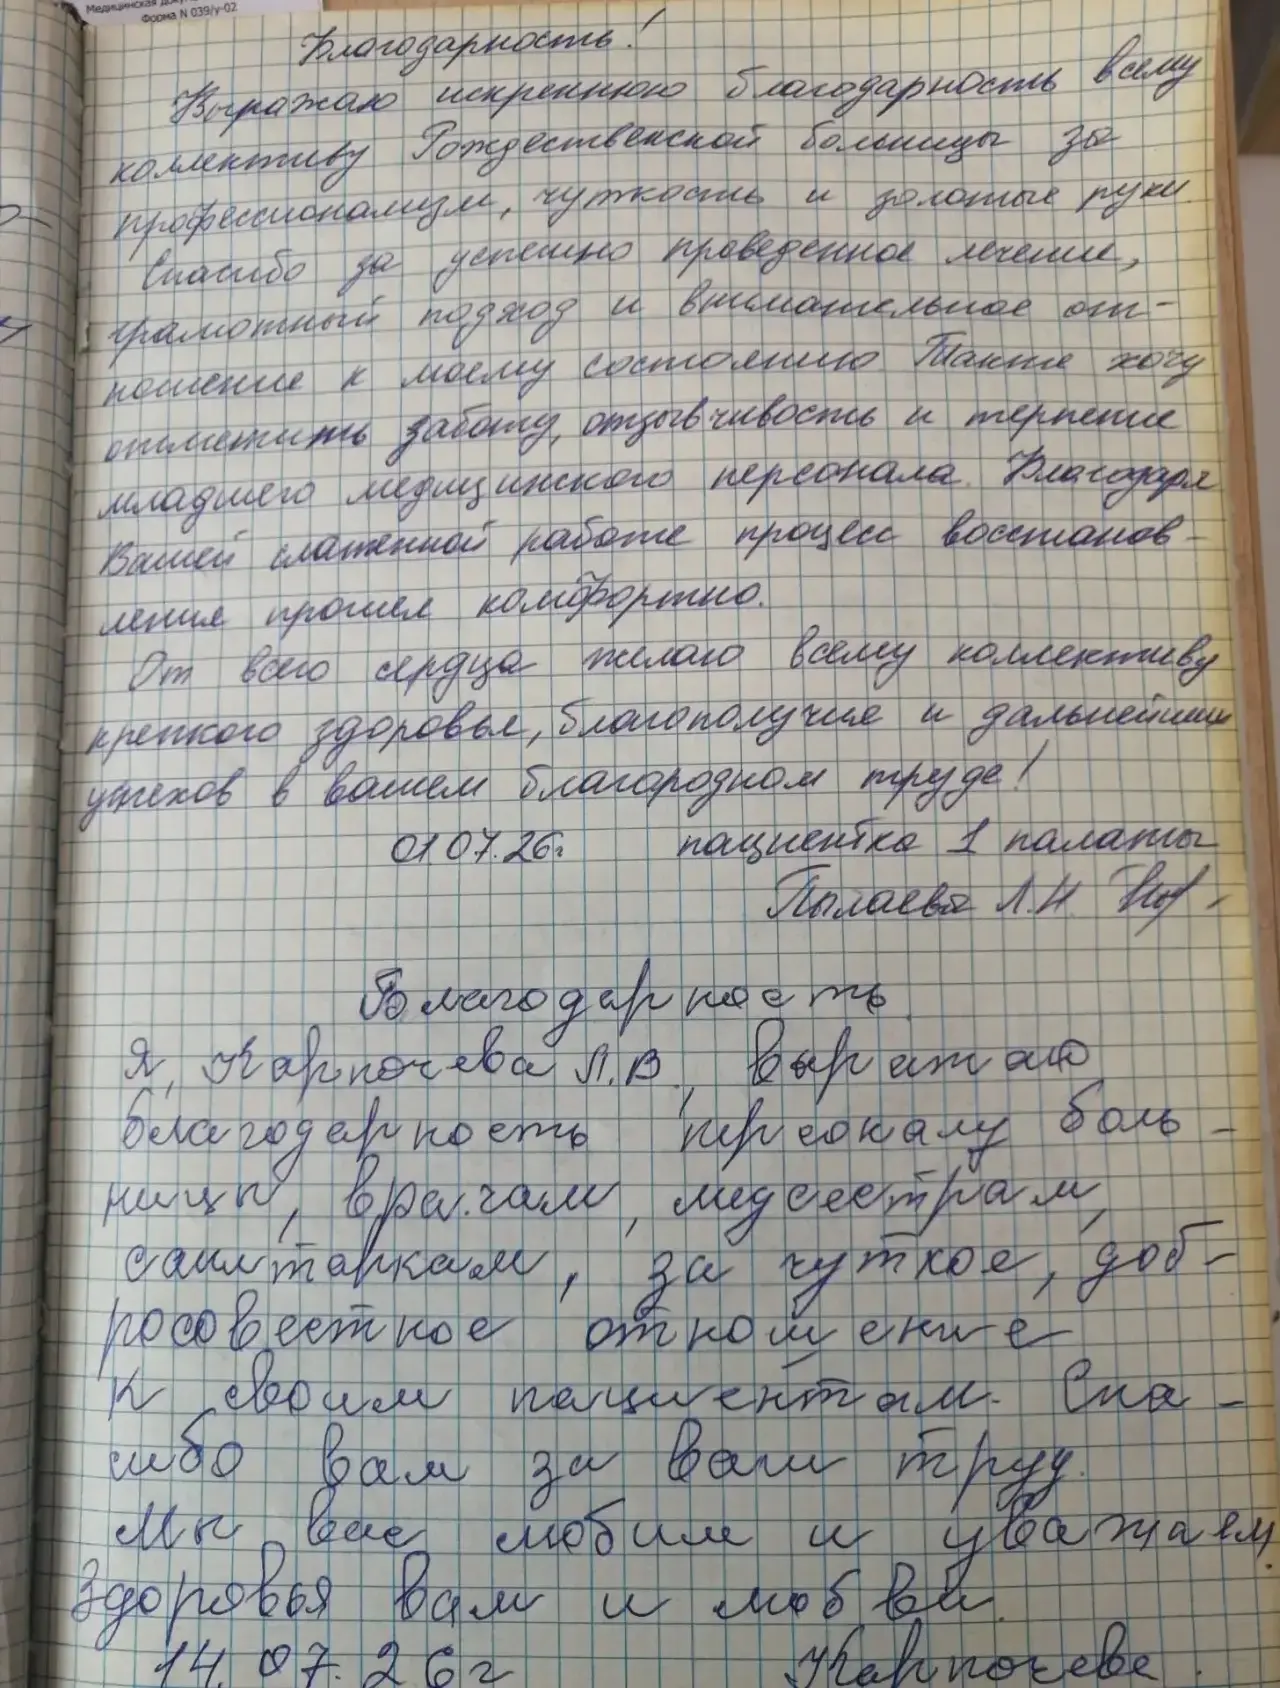 Медицинская
Форма N 039/у-02
Благодарность!
Выражаю искреннюю благодарность всему
коллективу Рождественской больницы за
профессионализм, чуткость и золотые руки.
Спасибо за успешно проведенное лечение,
грамотный подход и внимательное от-
ношение к моему состоянию Также хочу
отметить заботу, отзывчивость и терпение
младшего медицинского персонала. Благодаря
Вашей слаженной работе процесс восстанов-
ления прошел комфортно.
От всего сердца желаю всему коллективу
крепкого здоровья, благополучия и дальнейших
успехов в вашем благородном труде!
01 07.26г пациентка 1 палаты
Пылаева Л.Н.
Благодарность.
Я, Карпочева Л.В., выражаю
благодарность персоналу боль-
ницы, врачам, медсестрам,
санитаркам, за чуткое, доб-
росовестное отношение
к своим пациентам. Спа-
сибо вам за ваш труд.
Мы вас любим и уважаем.
Здоровья вам и любви.
14.07.26г Карпочева.